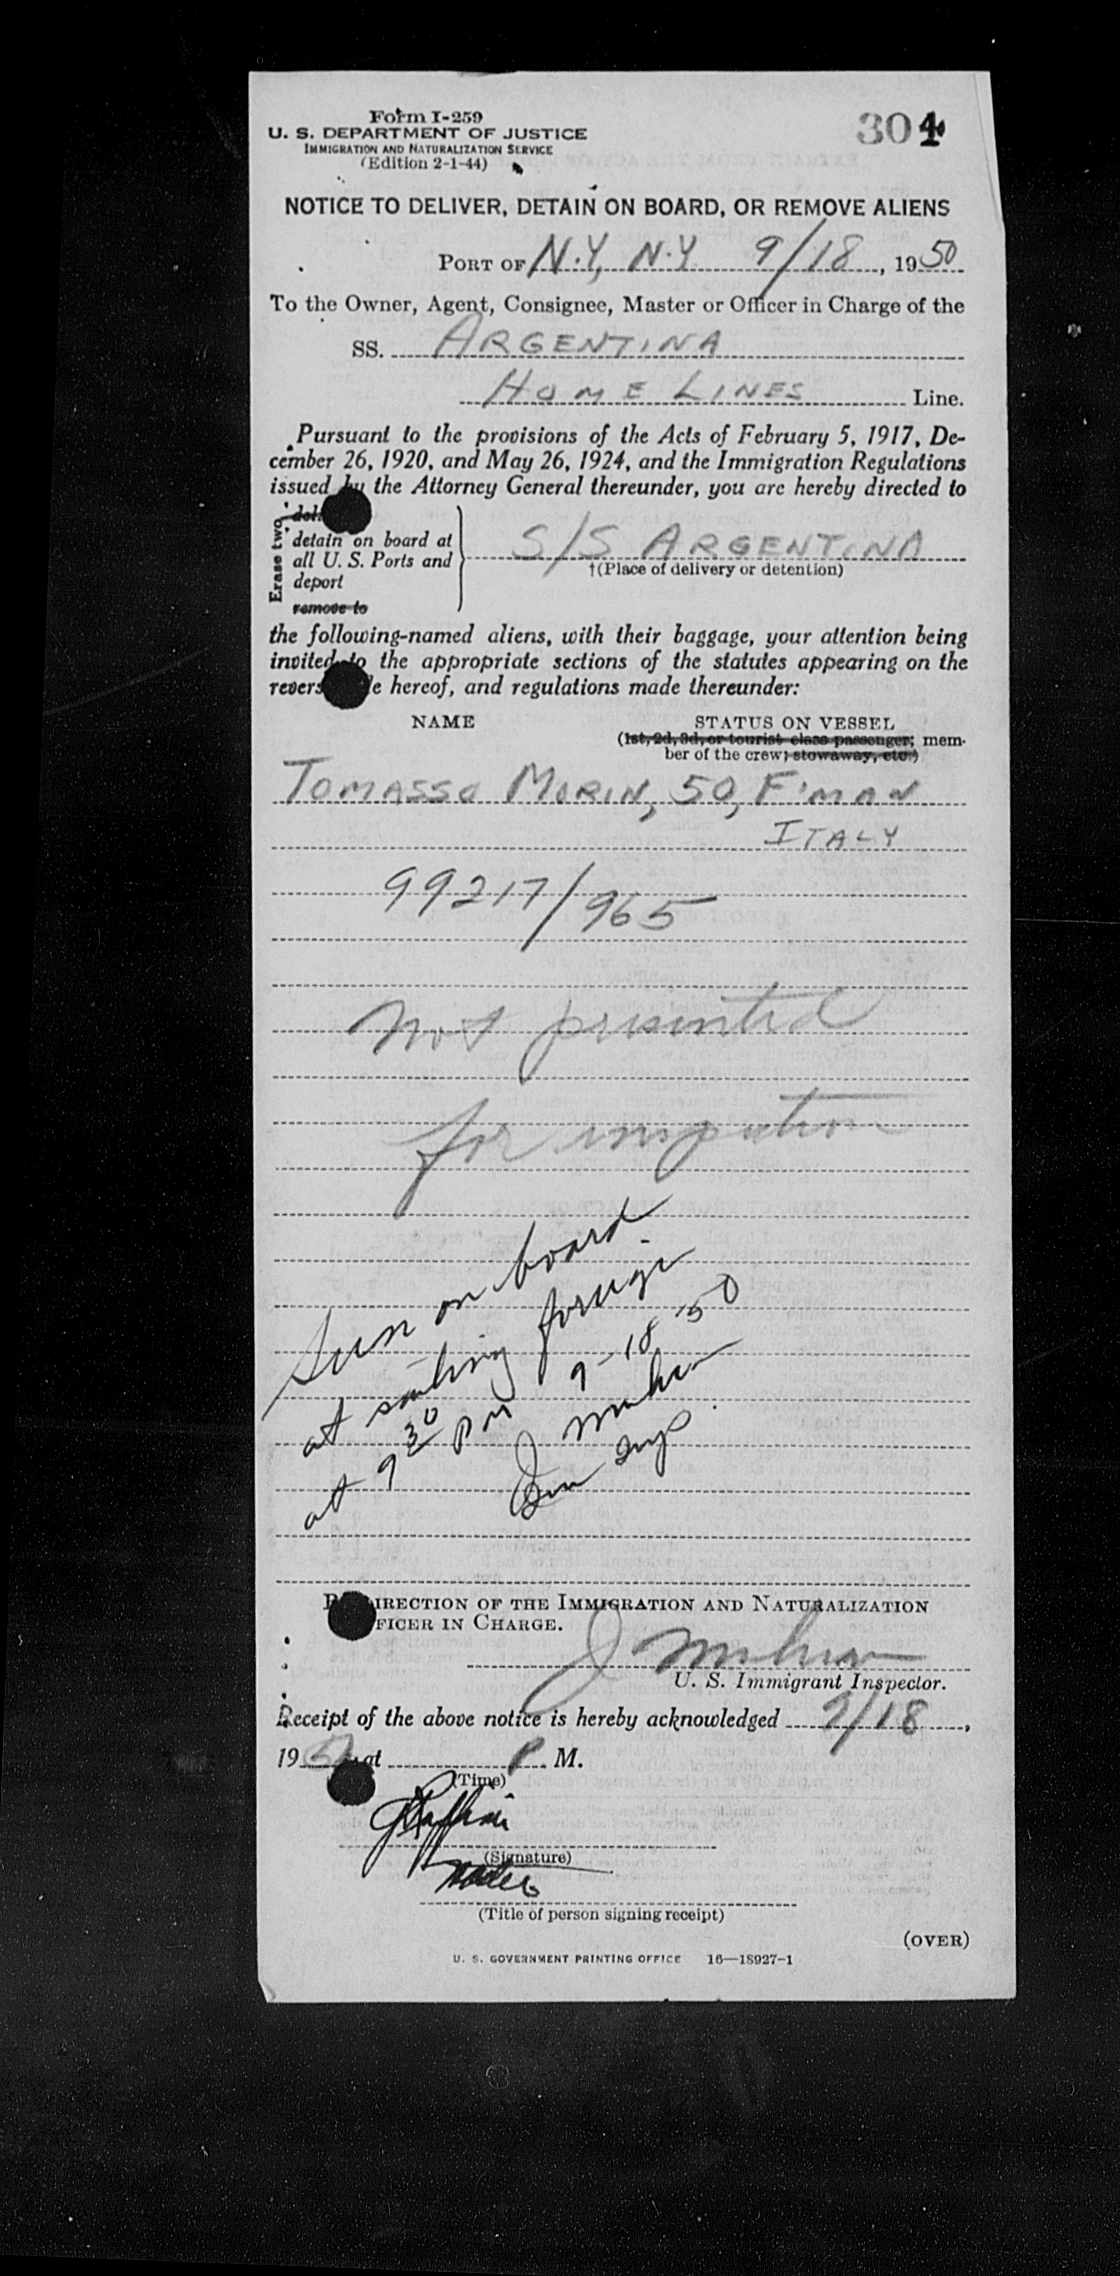 Form I-259
U. S. DEPARTMENT OF JUSTICE
IMMIGRATION AND NATURALIZATION SERVICE
(Edition 2-1-44)
304
NOTICE TO DELIVER, DETAIN ON BOARD, OR REMOVE ALIENS
PORT OF N.Y, N.Y 9/18, 1950
To the Owner, Agent, Consignee, Master or Officer in Charge of the
SS. ARGENTINA
HOME LINES Line.
Pursuant to the provisions of the Acts of February 5, 1917, De-
cember 26, 1920, and May 26, 1924, and the Immigration Regulations
issued by the Attorney General thereunder, you are hereby directed to
Erase two
detain on board at
all U. S. Ports and
deport
remove to
S/S ARGENTINA
†(Place of delivery or detention)
the following-named aliens, with their baggage, your attention being
invited to the appropriate sections of the statutes appearing on the
hereof, and regulations made thereunder:
NAME STATUS ON VESSEL
(1st, 2d, 3d, or tourist class passenger; mem-
ber of the crew; stowaway, etc.)
TOMASSO MORIN, 50, F'MAN
ITALY
99217/965
not presented
for inspection
Seen on board
at sailing foreign
at 9 30 PM 9-18-50
J
Imm Insp.
DIRECTION OF THE IMMIGRATION AND NATURALIZATION
OFFICER IN CHARGE.
J
U. S. Immigrant Inspector.
Receipt of the above notice is hereby acknowledged 9/18,
1950 at P. M.
(Time)
(Signature)
(Title of person signing receipt)
(OVER)
U. S. GOVERNMENT PRINTING OFFICE 16—18927-1